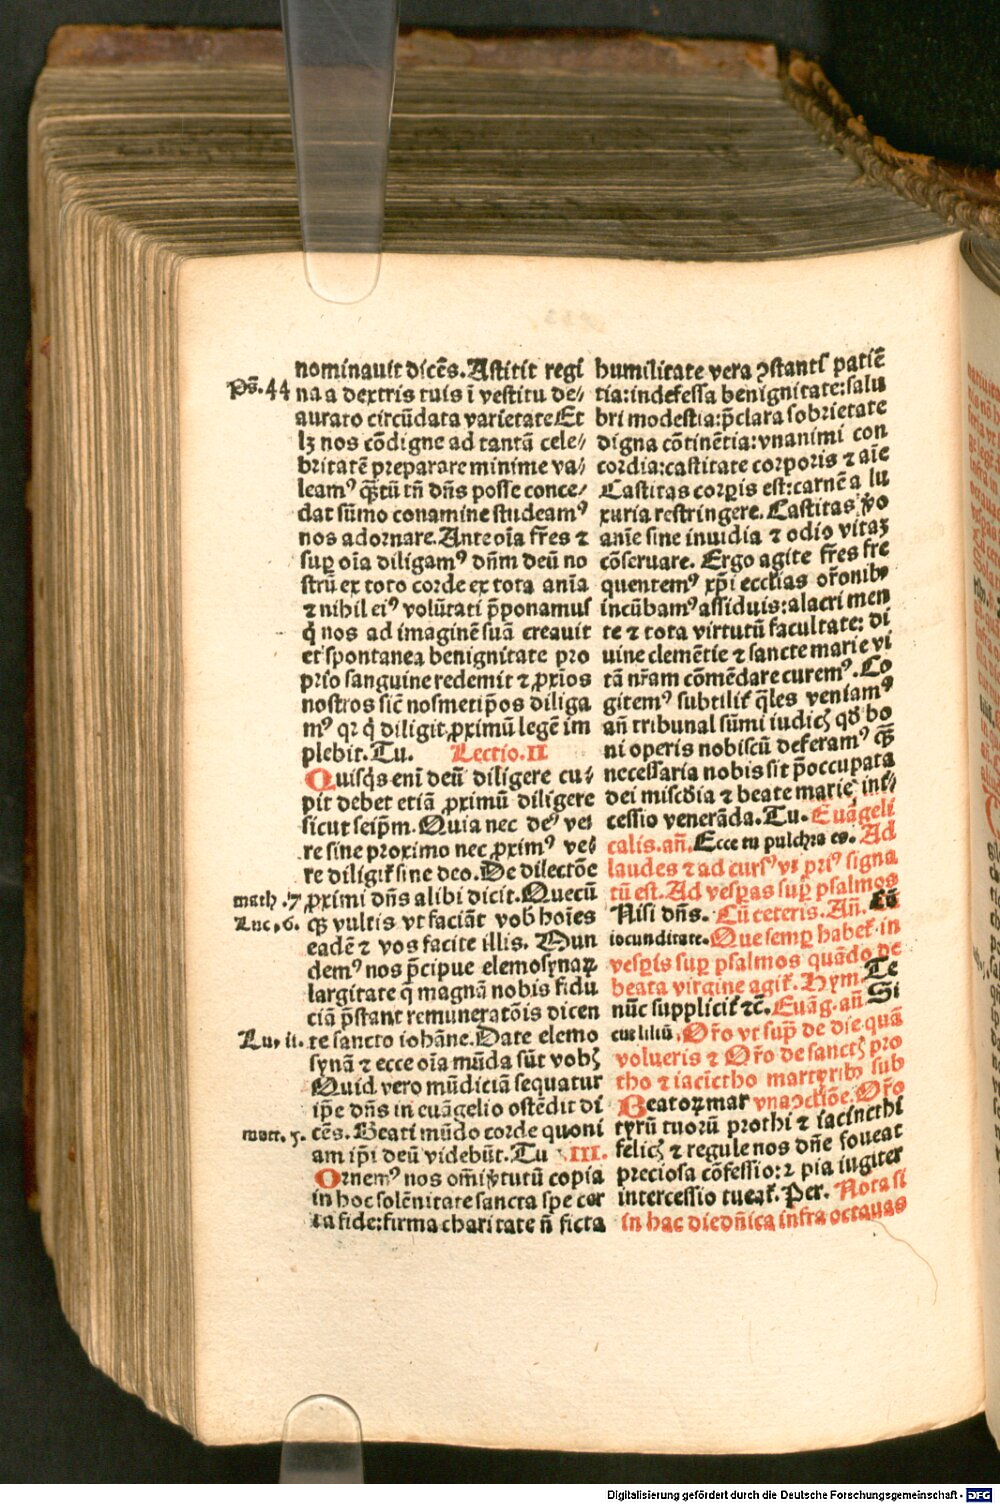 nominauit dicẽs. Astitit regi
Ps̃. 44
na a dextris tuis ĩ vestitu de⸗
aurato circũdata varietate Et
lꝫ nos cõdigne ad tantã cele⸗
britatẽ preparare minime va⸗
leamꝰ q̃ꝫtũ tñ dñs posse conce⸗
dat sũmo conamine studeamꝰ
nos adornare. Ante oĩa fr̃es ⁊
suꝑ oĩa diligamꝰ dñm deũ no
strũ ex toto corde ex tota anĩa
⁊ nihil eiꝰ volũtati p̃ponamus
q̇ nos ad imaginẽ suã creauit
et spontanea benignitate pro
prio sanguine redemit ⁊ ꝓxĩos
nostros sic̃ nosmetip̃os diliga
mꝰ qꝛ q̇ diligit ꝓximũ legẽ im
plebit. Tu. Lectio. II
Quisq̇s enĩ deũ diligere cu⸗
pit debet etiã ꝓximũ diligere
sicut seip̃m. Quia nec deꝰ ve⸗
re sine proximo nec ꝓximꝰ ve⸗
re diligit̃ sine deo. De dilectõe
math .7
ꝓximi dñs alibi dicit. Quecũ
Luc, 6.
qꝫ vultis vt faciãt vob̃ hoĩes
eadẽ ⁊ vos facite illis. Mun
demꝰ nos p̃cipue elemosynaꝝ
largitate q̃ magnã nobis fidu
ciã p̃stant remuneratõis dicen
Lu, ii.
te sancto iohãne. Date elemo
synã ⁊ ecce oĩa mũda sũt vobꝫ
Quid vero mũdiciã sequatur
ip̃e dñs in euãgelio ostẽdit di
matt. 5.
cẽs. Beati mũdo corde quoni
am ip̃i deũ videbũt. Tu III.
Ornemꝰ nos om̃i ṽtutũ copia
in hoc solẽnitate sancta spe cer
ta fide: firma charitate ñ ficta
humilitate vera ꝯstantĩ patiẽ
tia: indefessa benignitate: salu
bri modestia: p̃clara sobrietate
digna cõtinẽtia: vnanimi con
cordia: castitate corporis ⁊ aĩe
Castitas corꝑis est: carnẽ a lu
xuria restringere. Castitas ṽo
anĩe sine inuidia ⁊ odio vitaꝫ
cõseruare. Ergo agite fr̃es fre
quentemꝰ xp̃i eccl̃ias or̃onibꝰ
incũbamꝰ assiduis: alacri men
te ⁊ tota virtutũ facultate: di
uine clemẽtie ⁊ sancte marie vi
tã nr̃am cõmẽdare curemꝰ. Co
gitemꝰ subtilit̃ q̃les veniamꝰ
añ tribunal sũmi iudicꝫ qð bo
ni operis nobiscũ deferamꝰ q̃ꝫ
necessaria nobis sit p̃occupata
dei miscðia ⁊ beate marie int̃⸗
cessio venerãda. Tu. Euãgeli
calis. añ. Ecce tu pulchra es. Ad
laudes ⁊ ad cursꝰ vt priꝰ signa
tũ est. Ad vesꝑas suꝑ psalmos
Nisi dñs. Cũ ceteris. Añ. Cũ
iocunditate. Que semꝑ habet̃ in
vesꝑis suꝑ psalmos quãdo de
beata virgine agit̃. Hym. Te
nũc supplicit̃ ⁊c̃. Euãg. añ. Si
cut liliũ. Or̃o vt sup̃ de die quã
volueris ⁊ Or̃o de sanctꝫ pro
tho ⁊ iacĩctho martyribꝫ sub
vna ꝯclĩõe. Or̃o
Beatoꝝ mar
tyrũ tuorũ prothi ⁊ iacincthi
felicꝫ ⁊ regule nos dñe foueat
preciosa cõfessio: ⁊ pia iugiter
intercessio tueat̃. Per. Nota si
in hac die dñica infra octauas
Digitalisierung gefördert durch die Deutsche Forschungsgemeinschaft - DFG